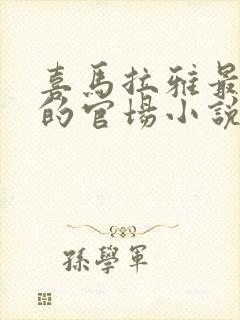 喜馬拉雅最
的官場小說
孫學軍